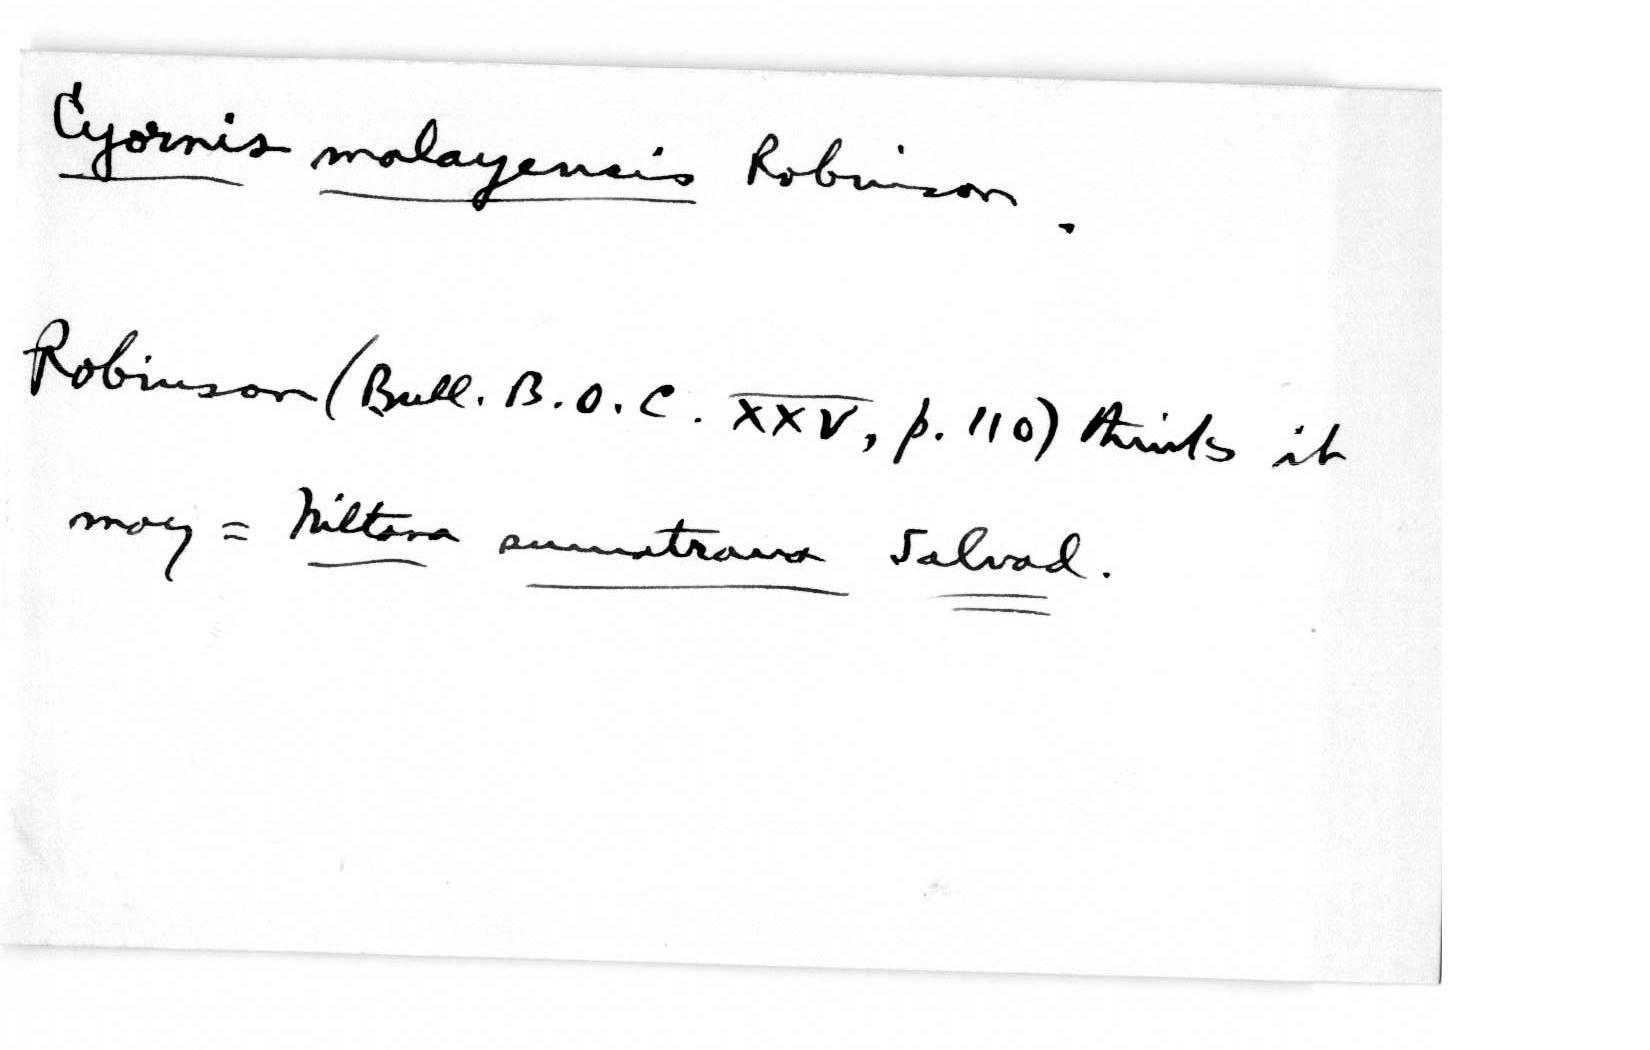 Cyornis malayensis Robinson.
Robinson (Bull. B.O.C. XXV, p. 110) thinks it
may = Niltava sumatrana Salvad.